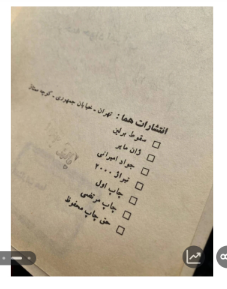 انتشارات هما: تهران - خیابان جمهوری - کوچه ممتاز
سقوط برلین
ژان مابر
جواد امیرانی
تیراژ ۲۰۰۰
چاپ اول
چاپ مرتضی
حق چاپ محفوظ